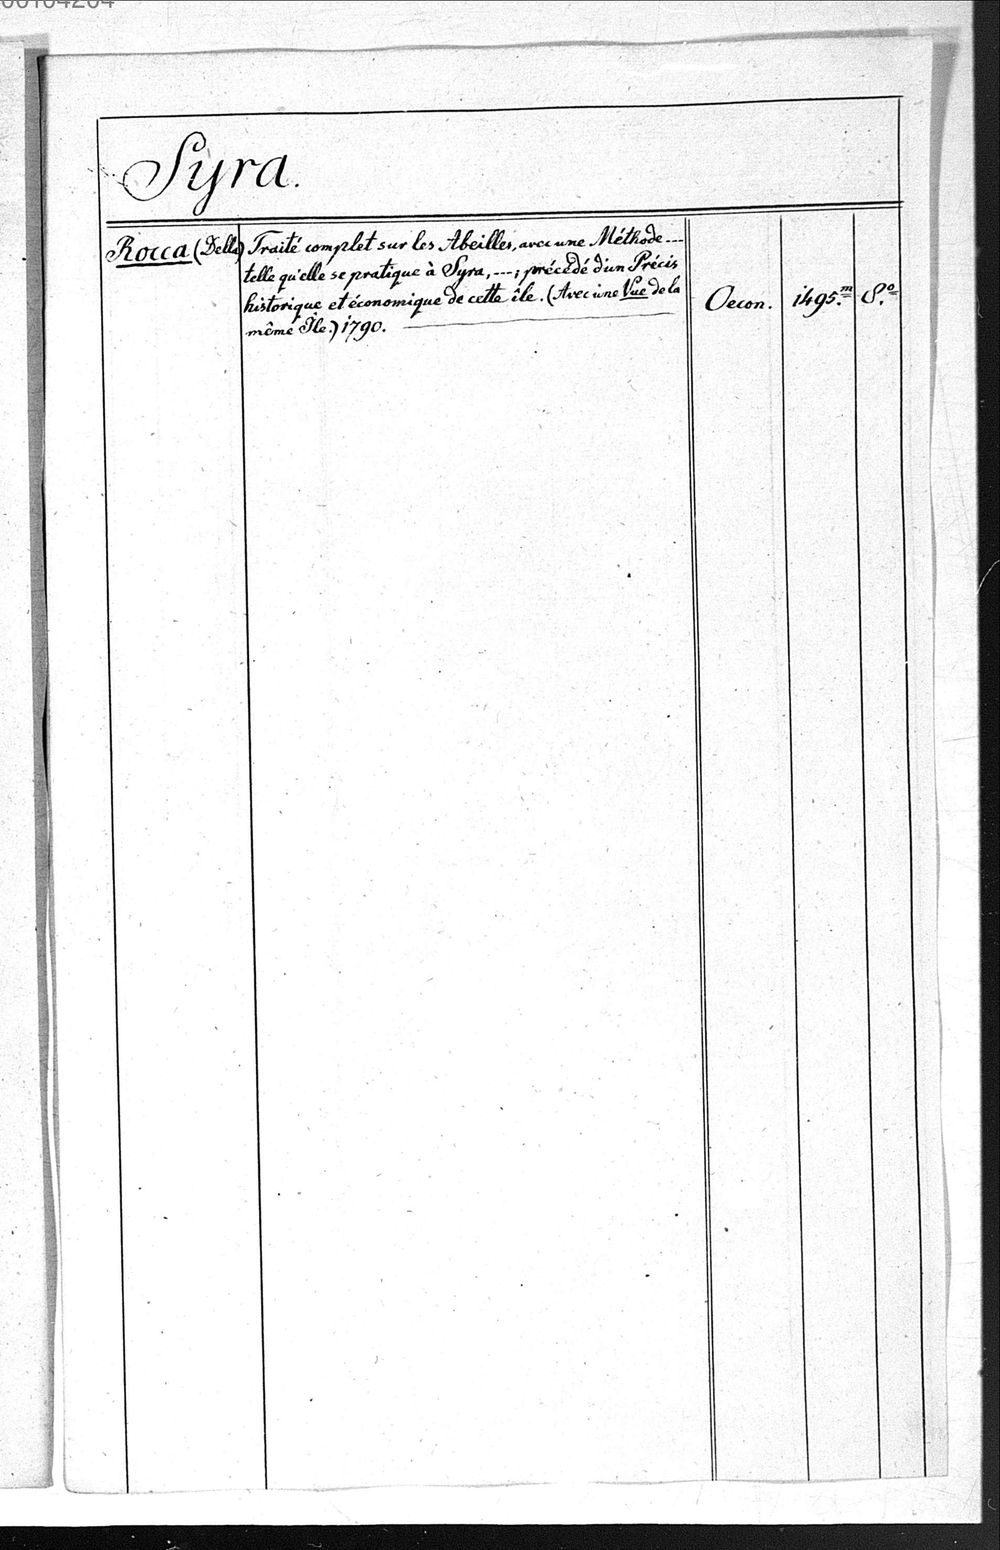 Syra.
Rocca (Della)
Traité complet sur les Abeilles, avec une Méthode ---
telle qu'elle se pratique à Syra, ---; précédé d'un Précis
historique et économique de cette île. (Avec une Vue de la
même Île.) 1790.
Oecon.
1495.m
8.o